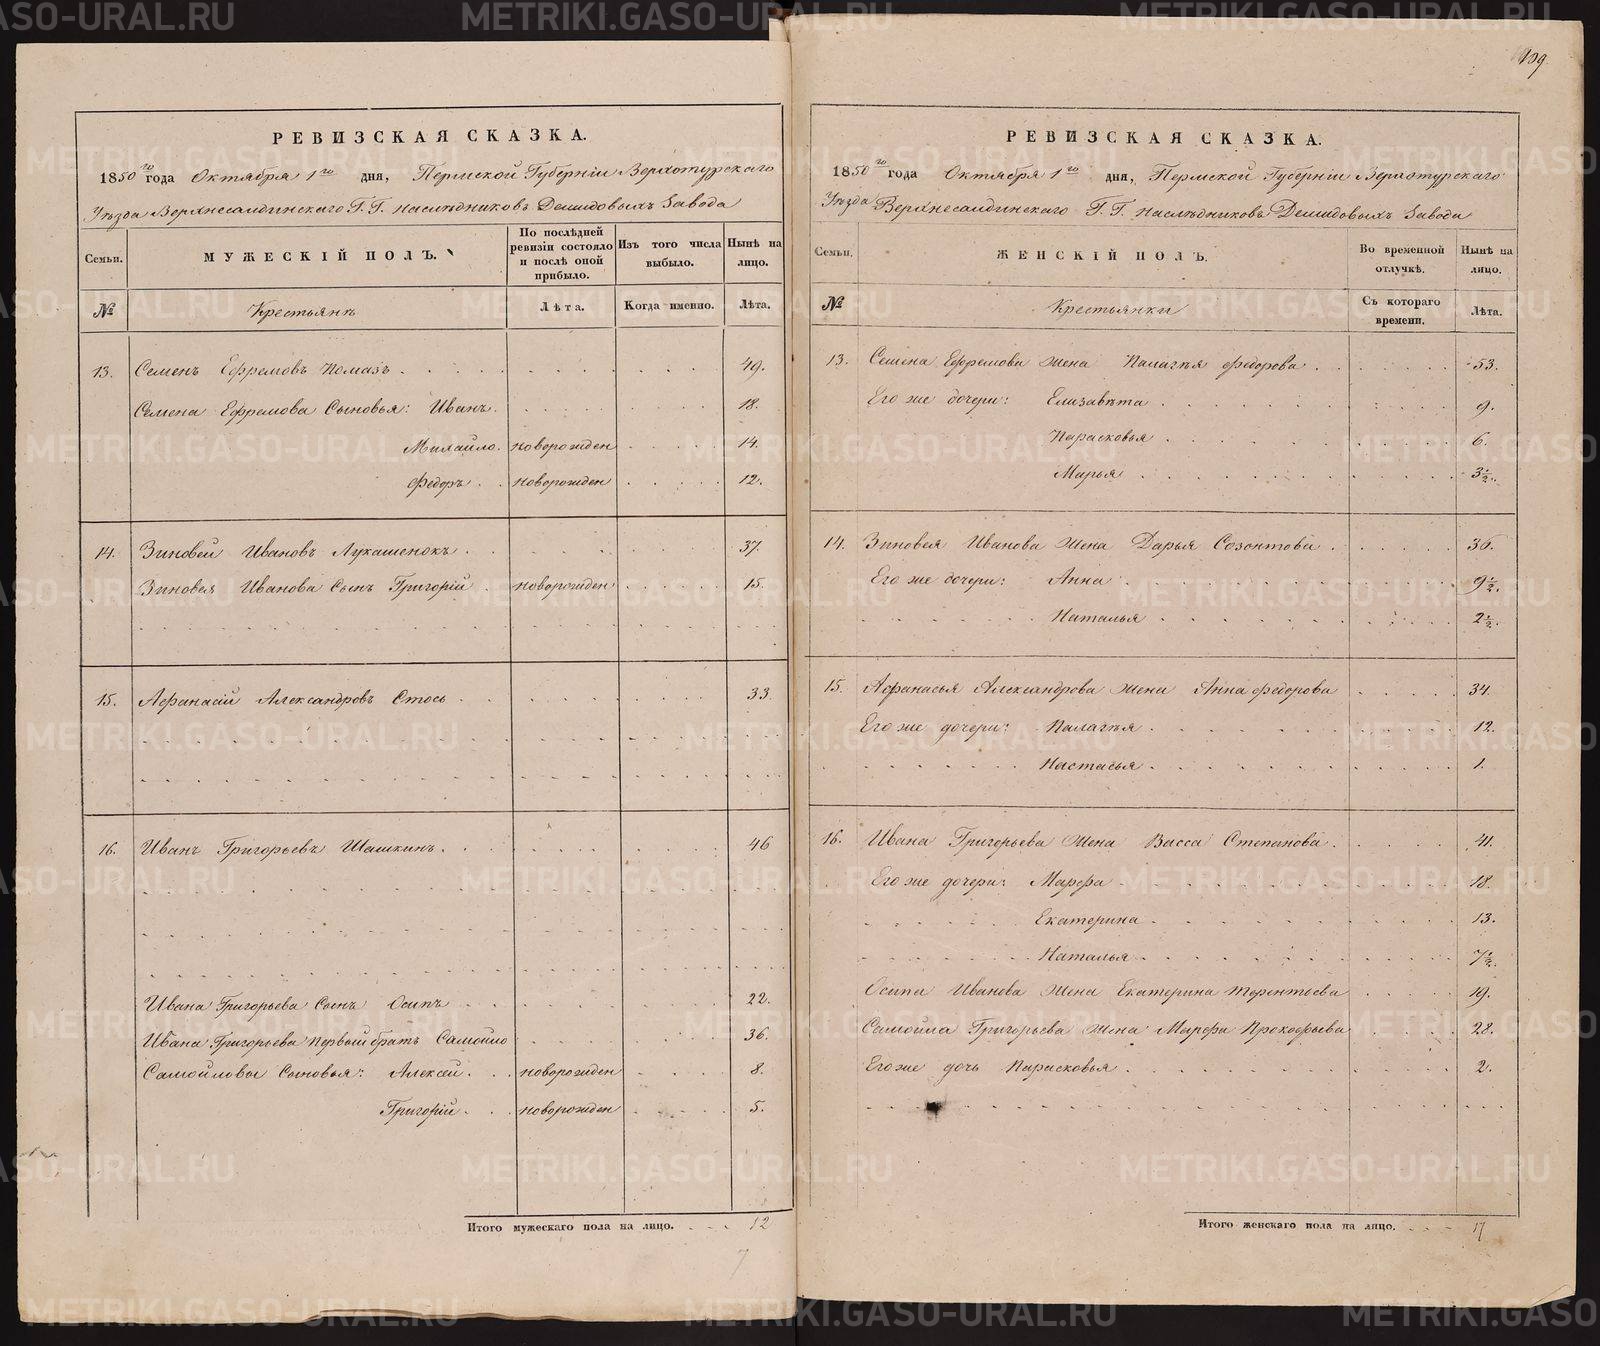 РЕВИЗСКАЯ СКАЗКА.
1850го года Октября 1го дня, Пермской Губерніи Верхотурскаго
Уѣзда Верхнесалдинскаго Г.Г. наслѣдниковъ Демидовыхъ Завода
Семьи.
МУЖЕСКІЙ ПОЛЪ.
По послѣдней ревизіи состояло и послѣ оной прибыло.
Изъ того числа выбыло.
Нынѣ на лицо.
№
Крестьянъ
Лѣта.
Когда именно.
Лѣта.
13. Семенъ Ефремовъ Помазъ 49.
Семена Ефремова Сыновья: Иванъ. 18.
Михайло. новорожден 14.
Федоръ новорожден 12.
14. Зиновей Ивановъ Лукашенокъ 37.
Зиновея Иванова Сынъ Григорій новорожден 15.
15. Афанасій Александровъ Стось 33.
16. Иванъ Григорьевъ Шашкинъ 46
Ивана Григорьева Сынъ Осипъ 22.
Ивана Григорьева первый братъ Самойло 36.
Самойловы Сыновья: Алексей новорожден 8.
Григорій новорожден 5.
Итого мужескаго пола на лицо. 12
7
109.
РЕВИЗСКАЯ СКАЗКА.
1850го года Октября 1го дня, Пермской Губерніи Верхотурскаго
Уѣзда Верхнесалдинскаго Г.Г. наслѣдниковъ Демидовыхъ Завода
Семьи.
ЖЕНСКІЙ ПОЛЪ.
Во временной отлучкѣ.
Нынѣ на лицо.
№
Крестьянки
Съ котораго времени.
Лѣта.
13. Семена Ефремова жена Палагѣя Федорова 53.
Его же дочери: Елизавѣта 9.
Парасковья 6.
Марья 3½.
14. Зиновея Иванова жена Дарья Созонтова 36.
Его же дочери: Анна 9½.
Наталья 2½.
15. Афанасья Александрова жена Анна Федорова 34.
Его же дочери: Палагѣя 12.
Настасья 1.
16. Ивана Григорьева жена Васса Степанова 41.
Его же дочери: Марфа 18.
Екатерина 13.
Наталья 7½.
Осипа Иванова жена Екатерина Терентьева 19.
Самойла Григорьева жена Марфа Прокофьева 28.
Его же дочь Парасковья 2.
Итого женскаго пола на лицо. 17
METRIKI.GASO-URAL.RU